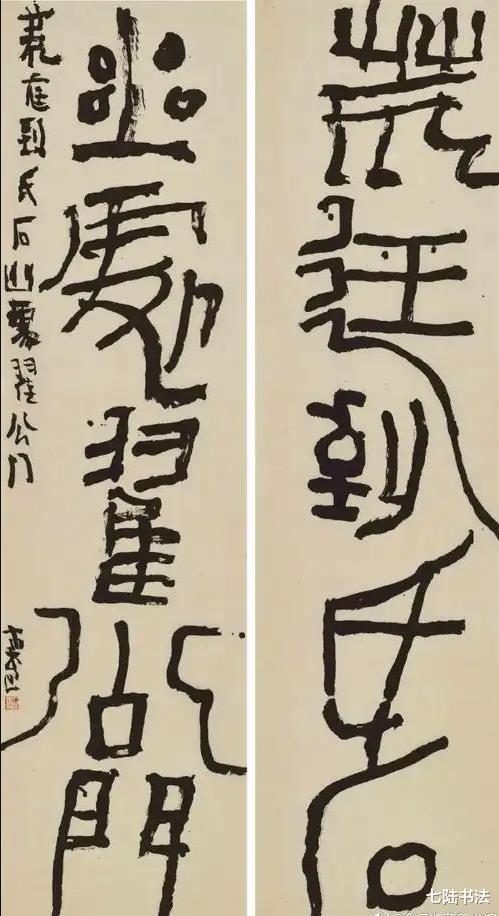 荒廷到氏石
幽處翟公門
荒庭到氏石幽處翟公门
七陆书法